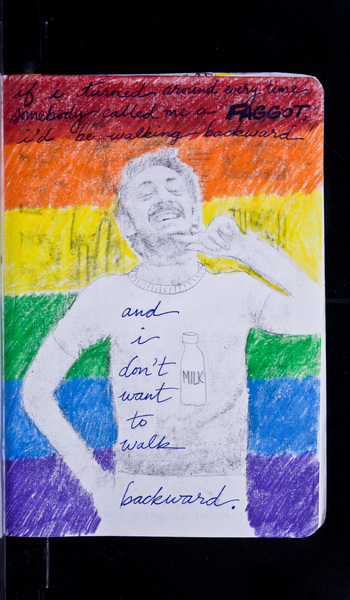 if i turned around every time
somebody called me a FAGGOT,
i'd be walking backward"
and
i
don't
want
to
walk
backward.
MILK